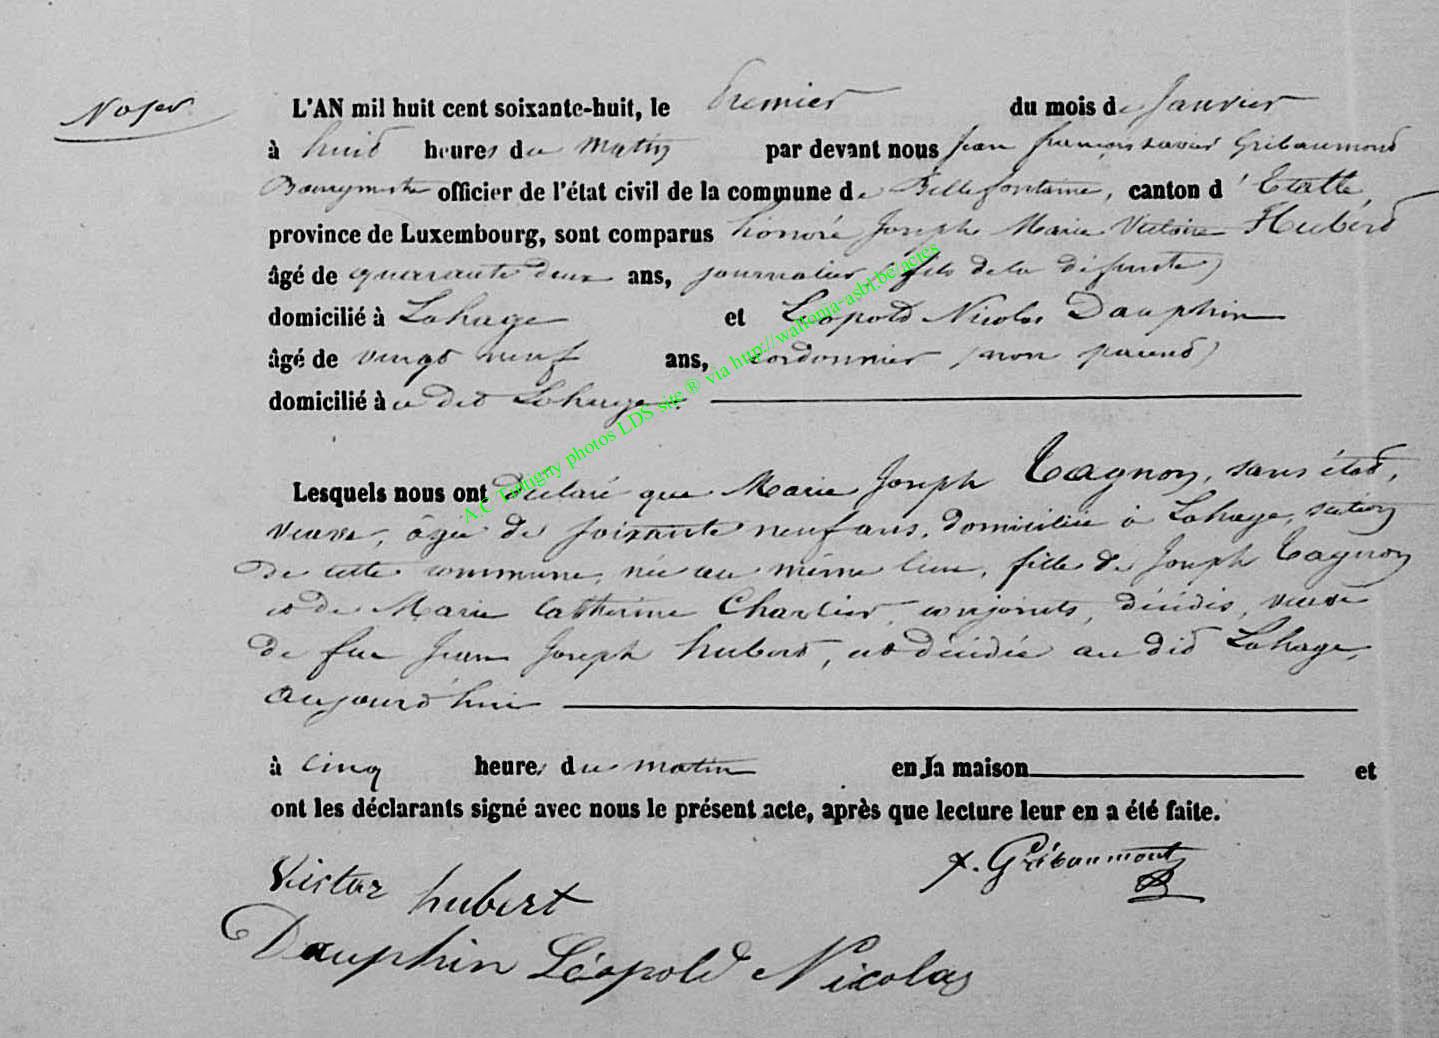 L'AN mil huit cent soixante-huit, le premier du mois de Janvier
à huit heures du matin par devant nous Jean françois xavier Gribaumont
Bourgmestre officier de l'état civil de la commune de Bellefontaine, canton d'Etalle,
province de Luxembourg, sont comparus honoré Joseph Marie Victoire Hubert
âgé de quarante deux ans, journalier (fils de la défunte)
domicilié à Lahage et Léopold Nicolas Dauphin
âgé de vingt neuf ans, cordonnier (non parent)
domicilié à dit Lahage.
Lesquels nous ont déclaré que Marie Joseph Tagnon, sans état,
veuve, âgée de soixante neuf ans, domiciliée à Lahage, section
de cette commune, née au même lieu, fille de Joseph Tagnon
et de Marie Catherine Charlier, conjoints, décédés, veuve
de feu Jean Joseph hubert, est décédée au dit Lahage,
aujourd'hui
à cinq heures du matin en la maison et
ont les déclarants signé avec nous le présent acte, après que lecture leur en a été faite.
x. Gribaumont
Victor hubert
Dauphin Léopold Nicolas
A.C Tintigny photos LDS site ® via http://wallonia-asbl.be/actes